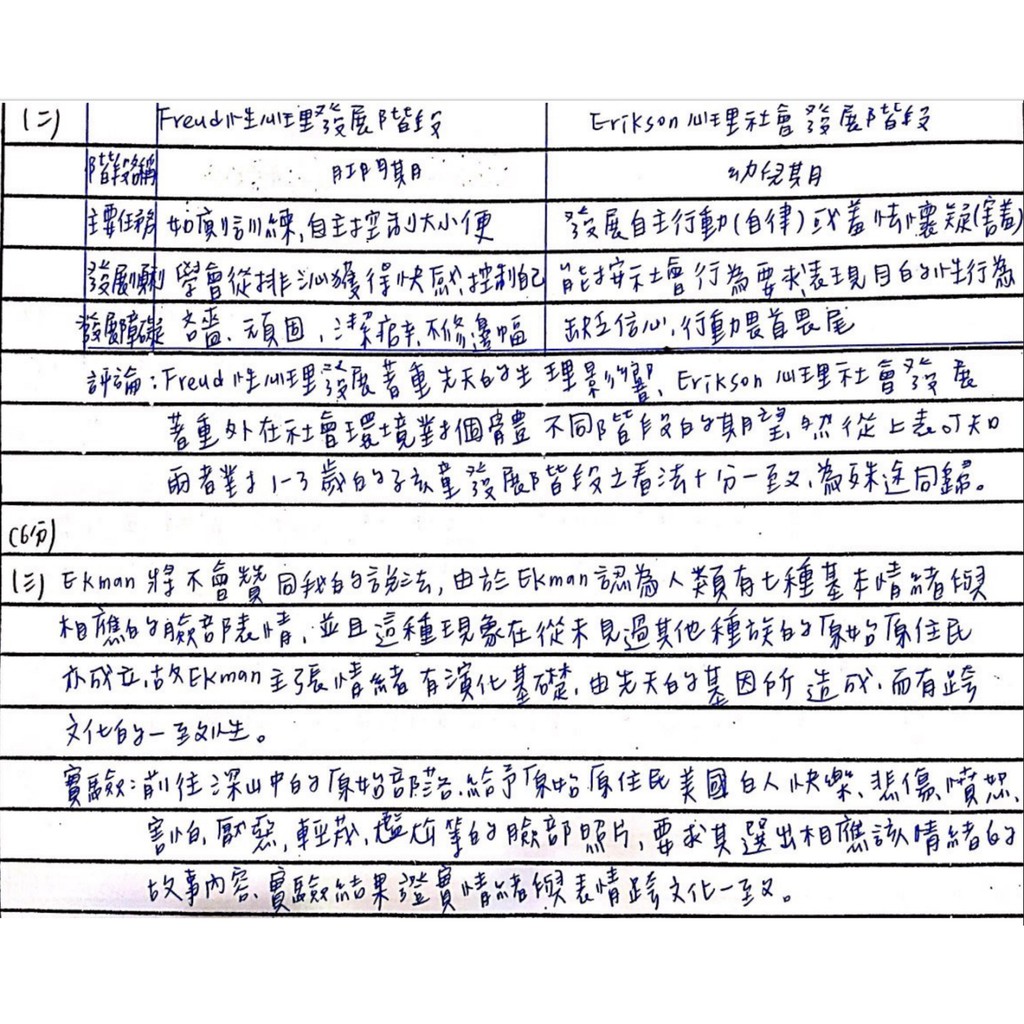 (二) Freud性心理發展階段 Erikson心理社會發展階段
階段名稱 肛門期 幼兒期
主要任務 如廁訓練,自主控制大小便 發展自主行動(自律)或羞怯懷疑(害羞)
發展順利 學會從排泄獲得快感,控制自己 能按社會行為要求,表現目的性行為
發展障礙 吝嗇、頑固,潔癖,不修邊幅 缺乏信心,行動畏首畏尾
評論:Freud性心理發展著重先天的生理影響、Erikson心理社會發展
著重外在社會環境對個體不同階段的期望,然從上表可知
兩者對於1-3歲的孩童發展階段之看法十分一致,為殊途同歸。
(6分)
(三) Ekman將不會贊同我的說法,由於Ekman認為人類有七種基本情緒與
相應的臉部表情,並且這種現象在從未見過其他種族的原始原住民
亦成立,故Ekman主張情緒有演化基礎,由先天的基因所造成,而有跨
文化的一致性。
實驗:前往深山中的原始部落,給予原始原住民美國白人快樂、悲傷、憤怒、
害怕、厭惡、輕蔑、尷尬等的臉部照片,要求其選出相應該情緒的
故事內容,實驗結果證實情緒與表情跨文化一致。